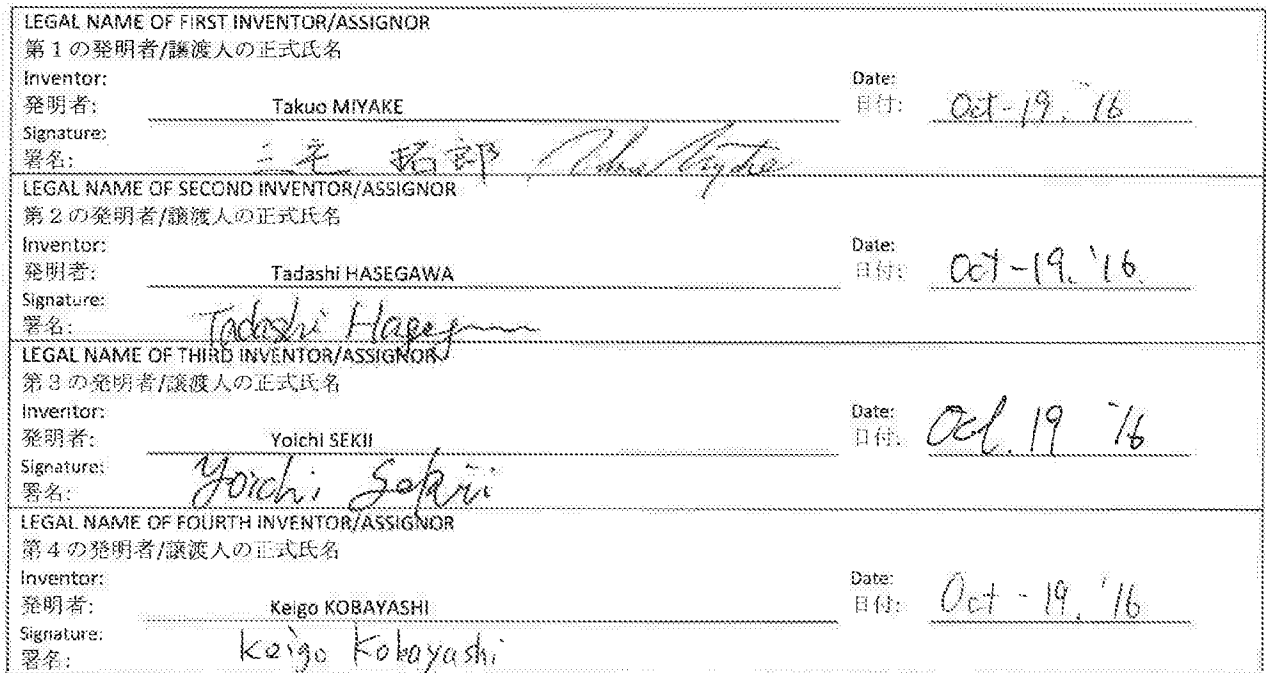 LEGAL NAME OF FIRST INVENTOR/ASSIGNOR
第1の発明者/譲渡人の正式氏名
Inventor: Date:
発明者: Takuo MIYAKE 日付: Oct-19. '16
Signature:
署名: 三宅 拓郎
LEGAL NAME OF SECOND INVENTOR/ASSIGNOR
第2の発明者/譲渡人の正式氏名
Inventor: Date:
発明者: Tadashi HASEGAWA 日付: Oct-19. '16.
Signature:
署名: Tadashi
LEGAL NAME OF THIRD INVENTOR/ASSIGNOR
第3の発明者/譲渡人の正式氏名
Inventor: Date:
発明者: Yoichi SEKII 日付: Oct. 19 '16
Signature:
署名: Yoichi Sekii
LEGAL NAME OF FOURTH INVENTOR/ASSIGNOR
第4の発明者/譲渡人の正式氏名
Inventor: Date:
発明者: Keigo KOBAYASHI 日付: Oct-19. '16
Signature:
署名: Keigo Kobayashi